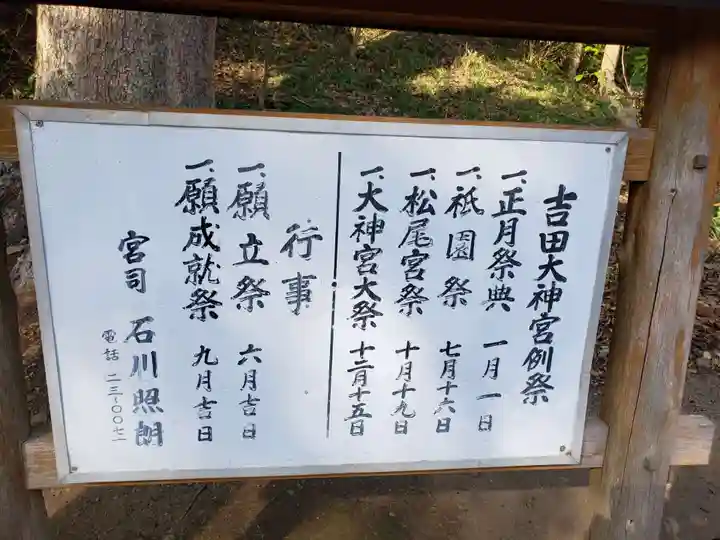 吉田大神宮例祭
一、正月祭典 一月一日
一、祇園祭 七月十六日
一、松尾宮祭 十月十九日
一、大神宮大祭 十二月十五日
行事
一、願立祭 六月吉日
一、願成就祭 九月吉日
宮司 石川照朗
電話 二三-〇〇七二